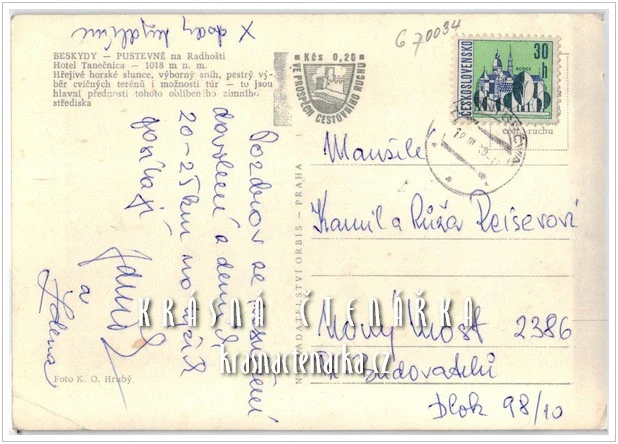 G 70034
BESKYDY — PUSTEVNÉ na Radhošti
Hotel Tanečnica — 1018 m n. m.
Hřejivé horské slunce, výborný sníh, pestrý vý-
běr cvičných terénů i možnosti túr — to jsou
hlavní přednosti tohoto oblíbeného zimního
střediska
Kčs 0,20
VE PROSPĚCH CESTOVNÍHO RUCHU
ČESKOSLOVENSKO
30
h
ruchu
Pozdrav ze
dovolené a denních
20-25 km na
posílají
a
Zdena
Manželé
Kamil a Růža Reiserovi
Nový Most 2386
Budovatelů
Blok 98/10
NAKLADATELSTVÍ ORBIS - PRAHA
Foto K. O. Hrubý
KRÁSNÁ ČTENÁŘKA
krasnactenarka.cz